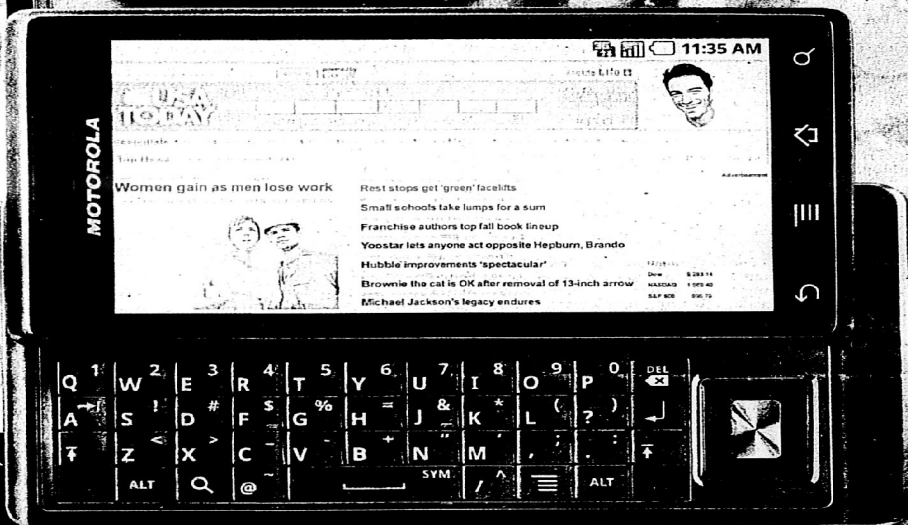 11:35 AM
Life
USA
TODAY
Advertisement
Women gain as men lose work
Rest stops get 'green' facelifts
Small schools take lumps for a sum
Franchise authors top fall book lineup
Yoostar lets anyone act opposite Hepburn, Brando
Hubble improvements 'spectacular'
Brownie the cat is OK after removal of 13-inch arrow
Michael Jackson's legacy endures
Dow
NASDAQ
S&P 500
MOTOROLA
Q 1 W 2 E 3 R 4 T 5 Y 6 U 7 I 8 O 9 P 0 DEL
A S ! D # F $ G % H = J & K * L ( ? )
Z < X > C _ V - B + N " M ' , ; . :
ALT @ ~ SYM / ^ ALT